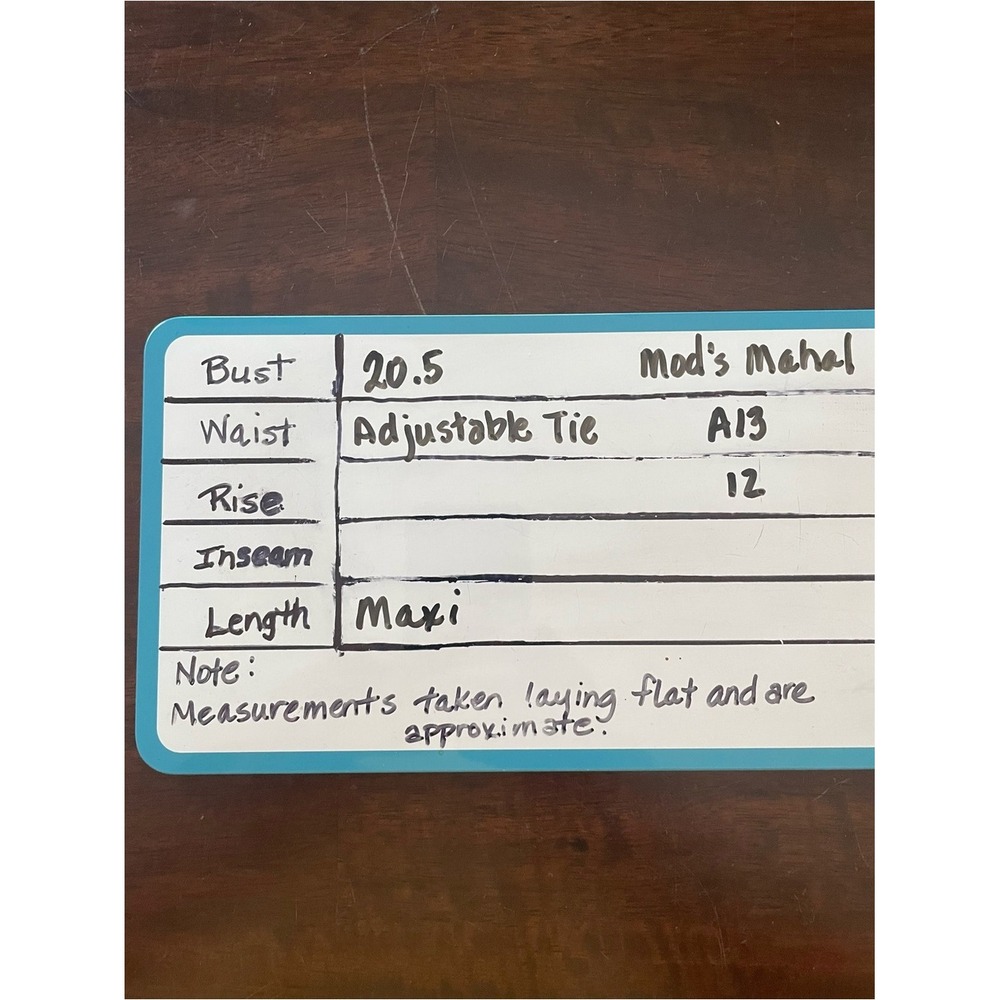 Bust 20.5 Mod's Mahal
Waist Adjustable Tie A13
Rise 12
Inseam
Length Maxi
Note:
Measurements taken laying flat and are
approximate.